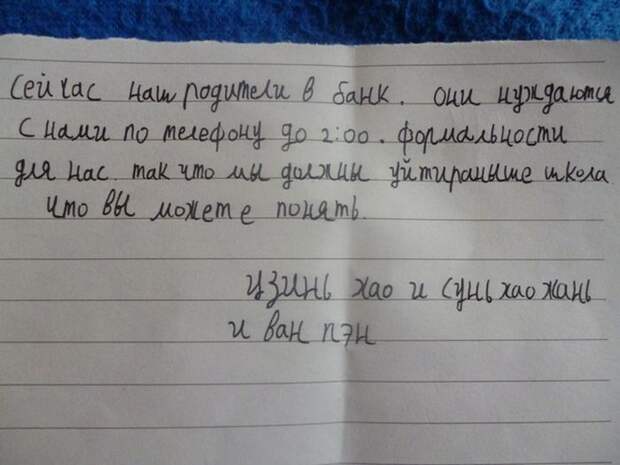 сейчас наш родители в банк. они нуждаются
с нами по телефону до 2:00. формальности
для нас. так что мы должны уйтираныше школа
что вы может е понять.
цзинь хао и сунь хао жань
и ван пэн